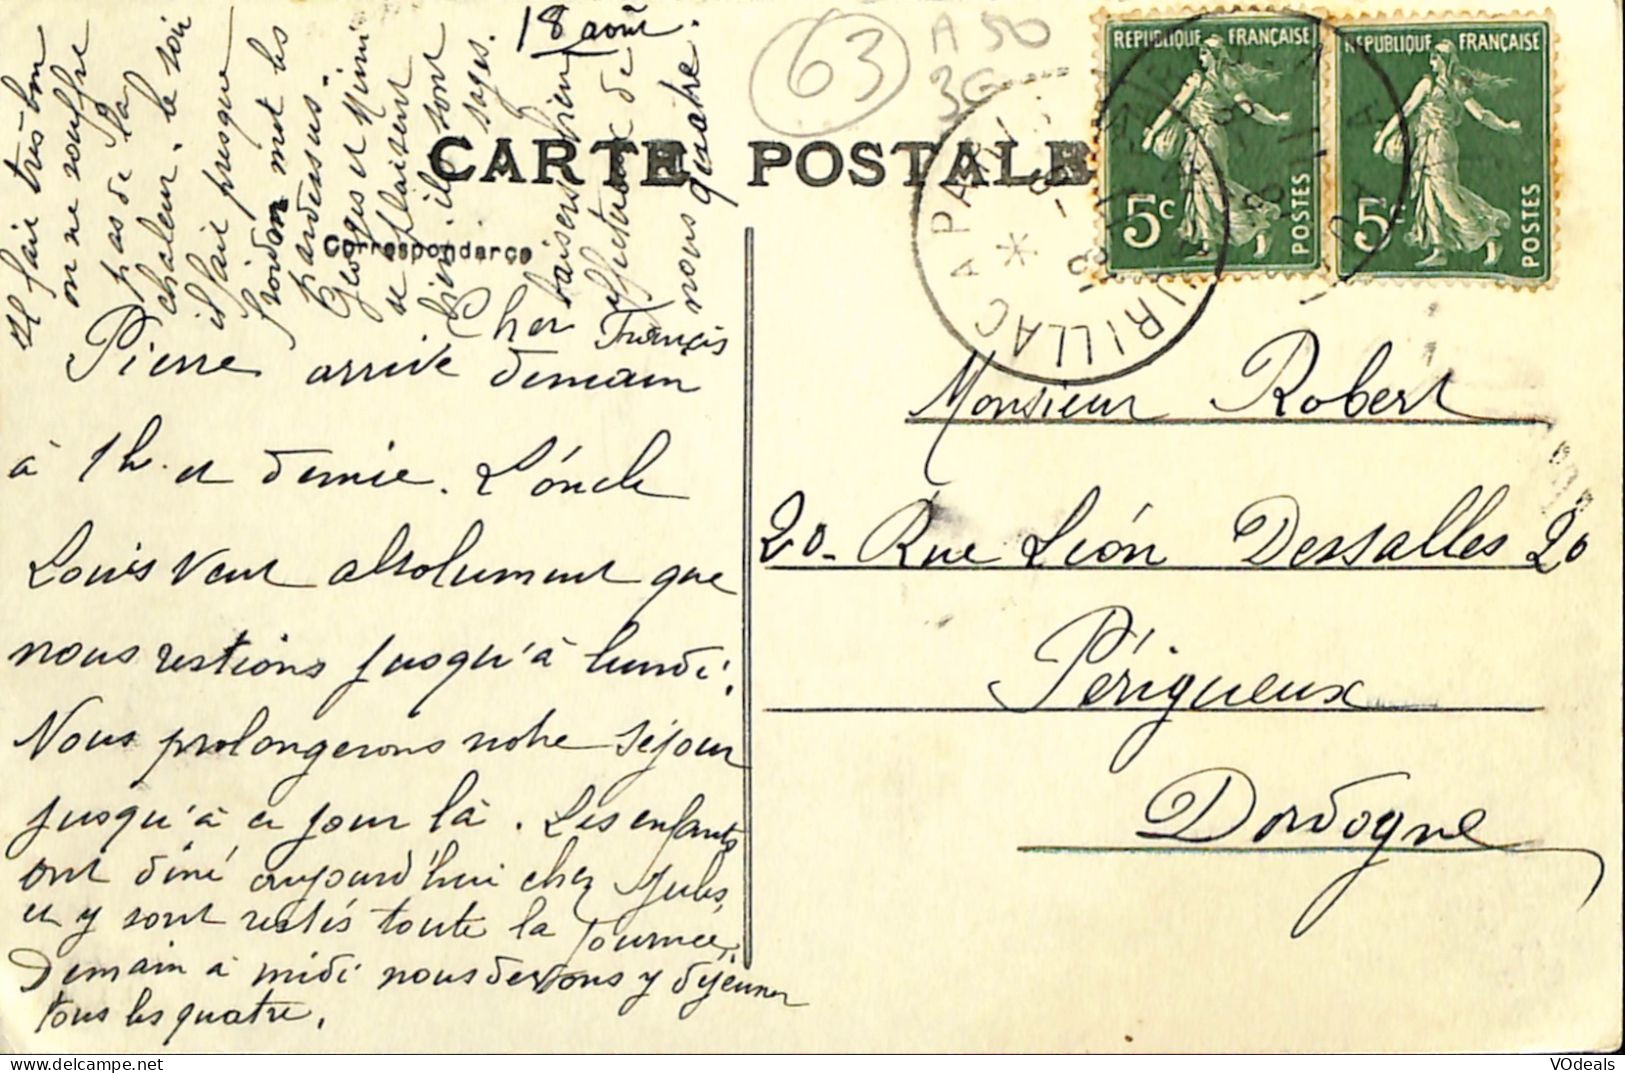 18 août
63
A 50
36
CARTE POSTALE
Correspondance
REPUBLIQUE FRANÇAISE
5c
POSTES
REPUBLIQUE FRANÇAISE
5c
POSTES
AURILLAC A PARIS
Cher François
Pierre arrive demain
à 1h. et demie. L'oncle
Louis veut absolument que
nous restions jusqu'à lundi.
Nous prolongerons notre séjour
jusqu'à ce jour là. Les enfants
ont dîné aujourd'hui chez Jules,
et y sont restés toute la journée.
Demain à midi nous devons y déjeuner
tous les quatre.
Il fait très bon
on ne souffre
pas de la
chaleur. le soir
il fait presque
froid on met les
pardessus.
Georges et Mimi
se plaisent
bien. ils sont
sages.
baisers bien
affectueux de
nous quatre.
Monsieur Robert
20- Rue Léon Dessalles 20
Périgueux
Dordogne
VOdeals